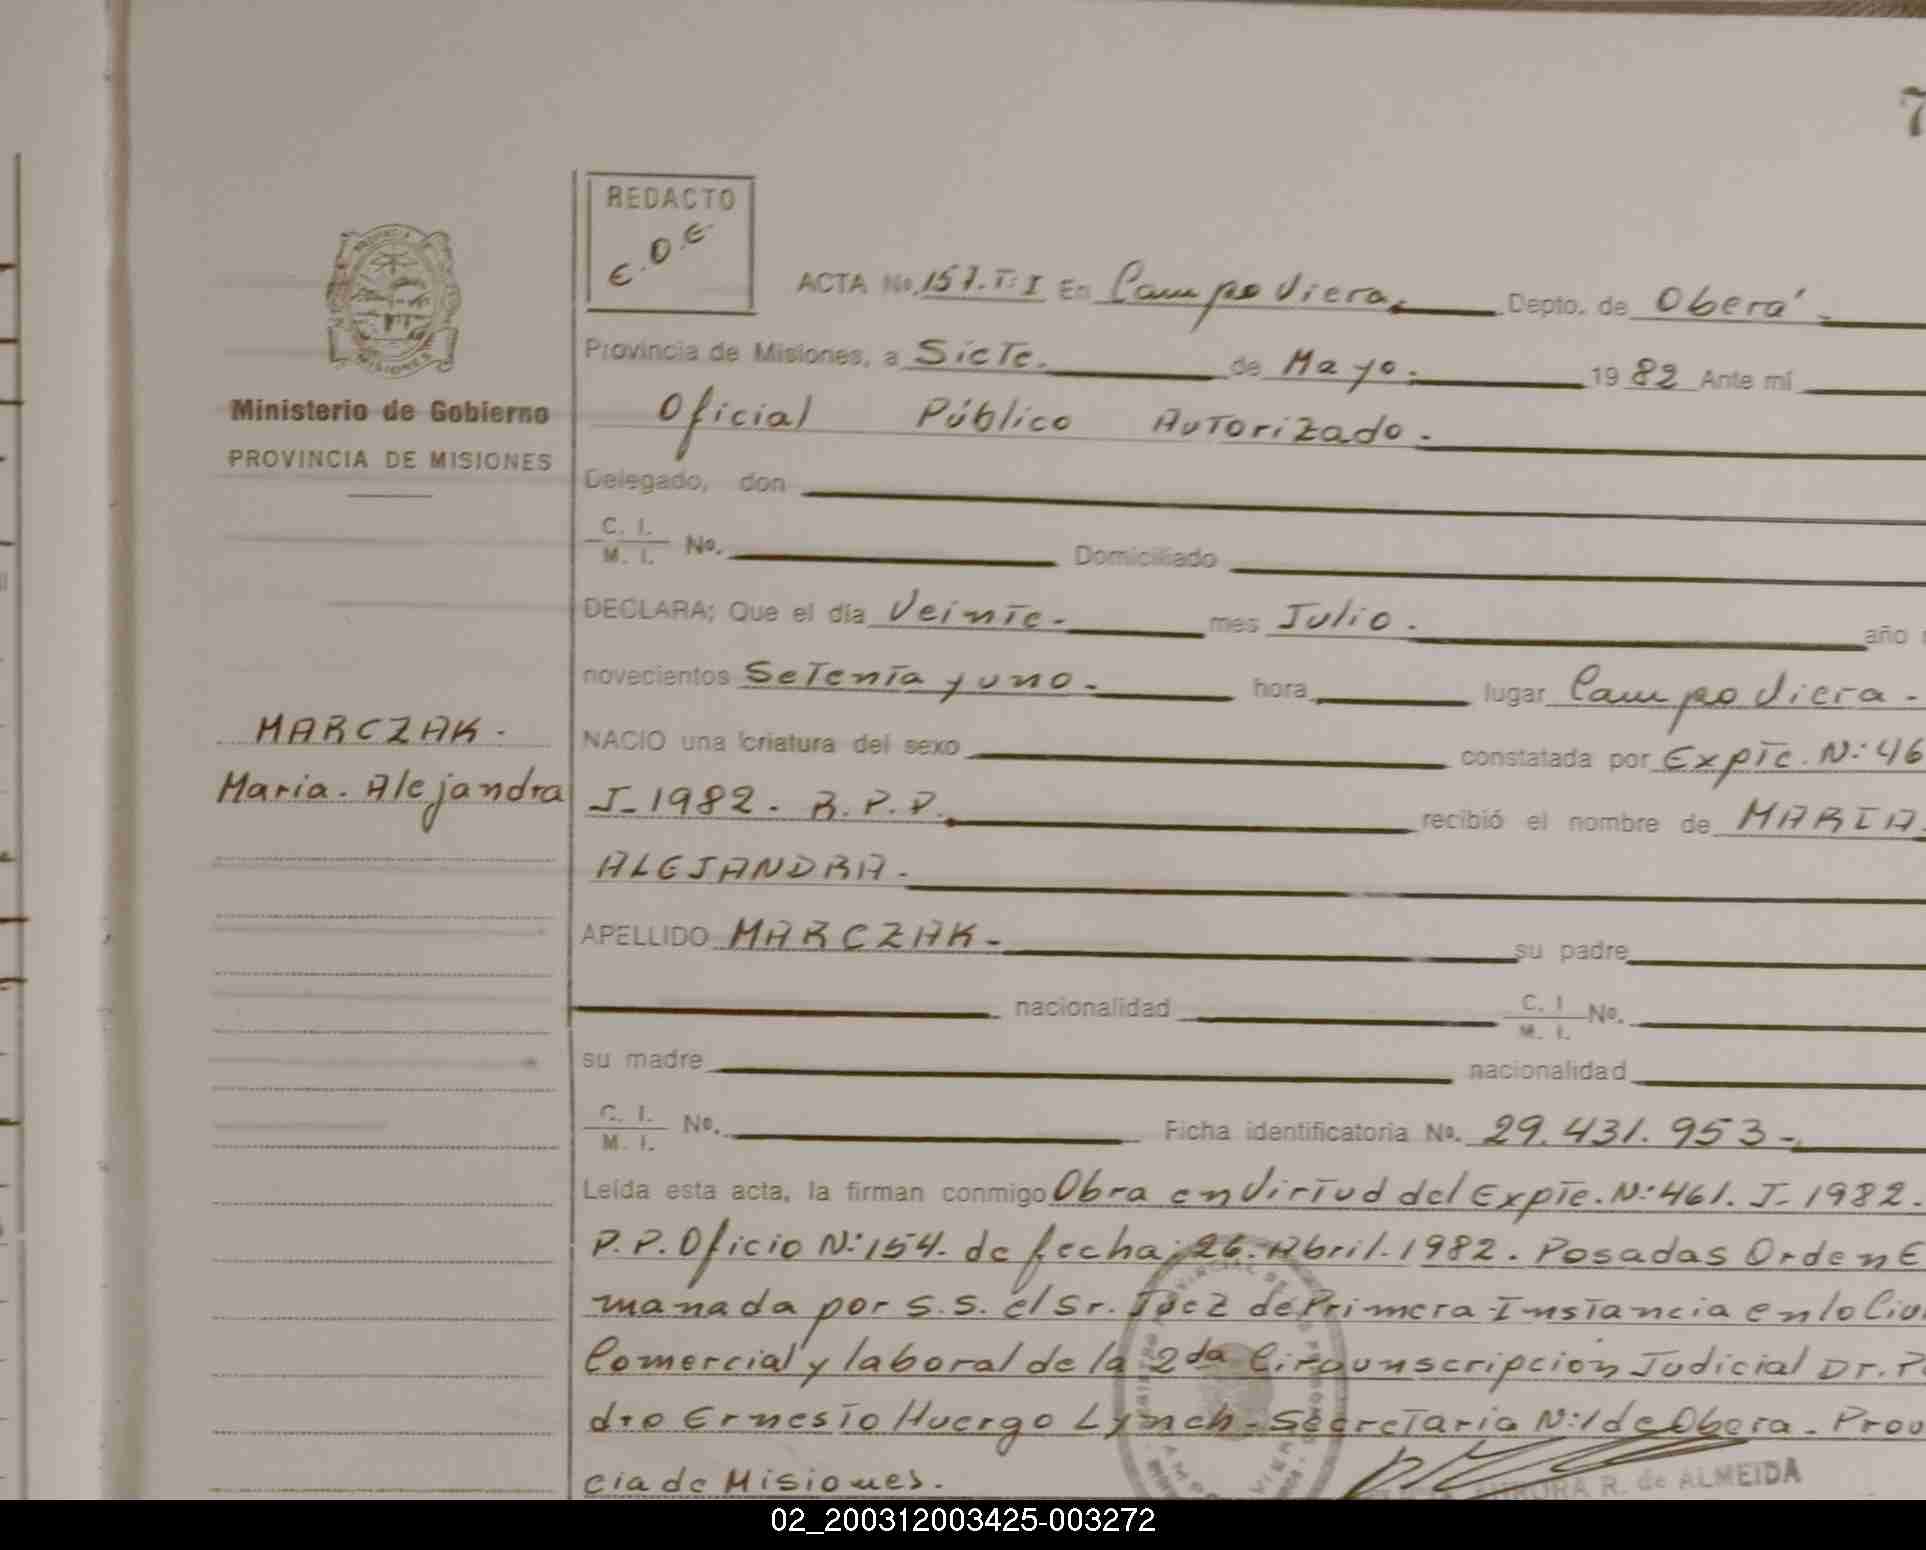 7
REDACTO
E.O.E
ACTA No. 157.T:I En Campo Viera. Depto. de Oberá.
Provincia de Misiones, a Siete. de Mayo. 1982 Ante mí
Oficial Público Autorizado.
Ministerio de Gobierno
PROVINCIA DE MISIONES
Delegado, don
C. I. M. I. No. Domiciliado
DECLARA; Que el día Veinte. mes Julio. año
novecientos Setenta y uno. hora lugar Campo Viera.
MARCZAK.
Maria. Alejandra
NACIO una criatura del sexo constatada por Expte. N:46
J-1982. R.P.P. recibió el nombre de MARIA
ALEJANDRA.
APELLIDO MARCZAK. su padre
nacionalidad C. I M. I. No.
su madre nacionalidad
C. I. M. I. No. Ficha identificatoria No. 29.431.953.
Leída esta acta, la firman conmigo Obra en Virtud del Expte. N:461. J-1982.
P.P. Oficio N:154. de fecha; 26. Abril. 1982. Posadas Orden E
manada por S.S. el Sr. Juez de Primera Instancia en lo Civ
Comercial y laboral de la 2da Circunscripcion Judicial Dr. P
dro Ernesto Huergo Lynch. Secretaria N:1 de Obera. Prov
cia de Misiones.
AURORA R. de ALMEIDA
02_200312003425-003272